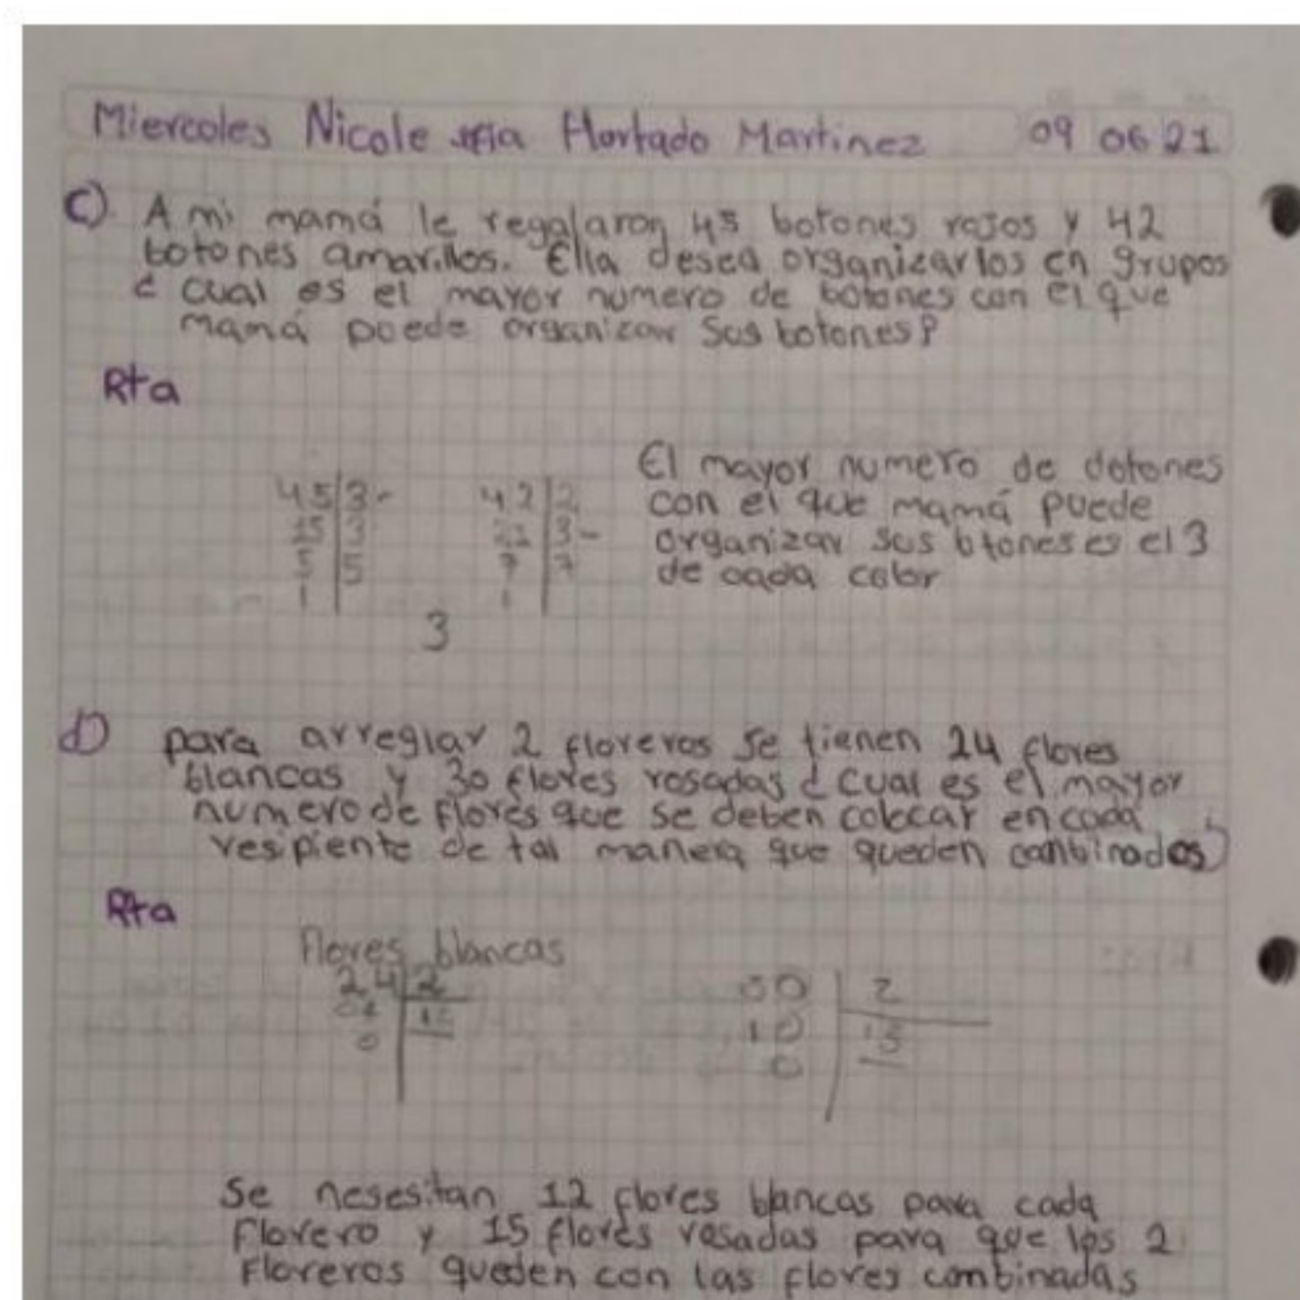 Miercoles Nicole sofia Hurtado Martinez 09 06 21
c) A mi mamá le regalaron 45 botones rojos y 42
botones amarillos. Ella desea organizarlos en grupos
¿ cual es el mayor numero de botones con el que
mamá puede organizar sus botones?
Rta
El mayor numero de dotones
con el que mamá puede
organizar sus btones es el 3
de cada color
45 3 -
15 3
5 5
1
42 2
21 3 -
7 7
1
3
d) para arreglar 2 floreros se tienen 24 flores
blancas y 30 flores rosadas ¿ cual es el mayor
numero de flores que se deben colocar en cada
resipiente de tal manera que queden combinados?
Rta
flores blancas
24 2
04 12
0
30 2
10 15
0
Se nesesitan 12 flores blancas para cada
florero y 15 flores rosadas para que los 2
Floreros queden con las flores combinadas